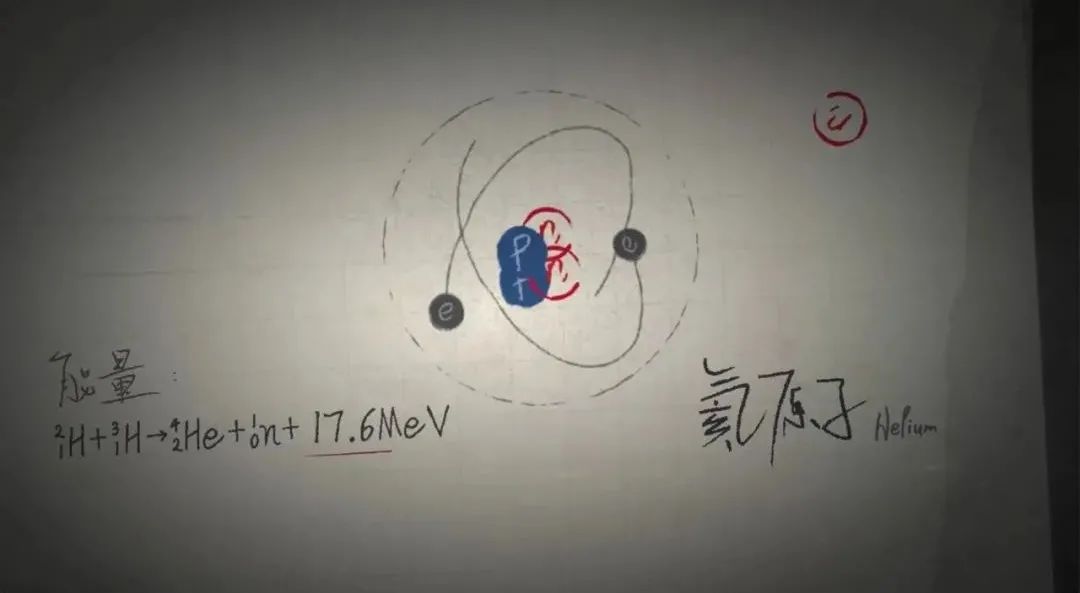 n
p e
n
+
e
能量:
²₁H+³₁H→⁴₂He+¹₀n+17.6MeV
氦原子 Helium